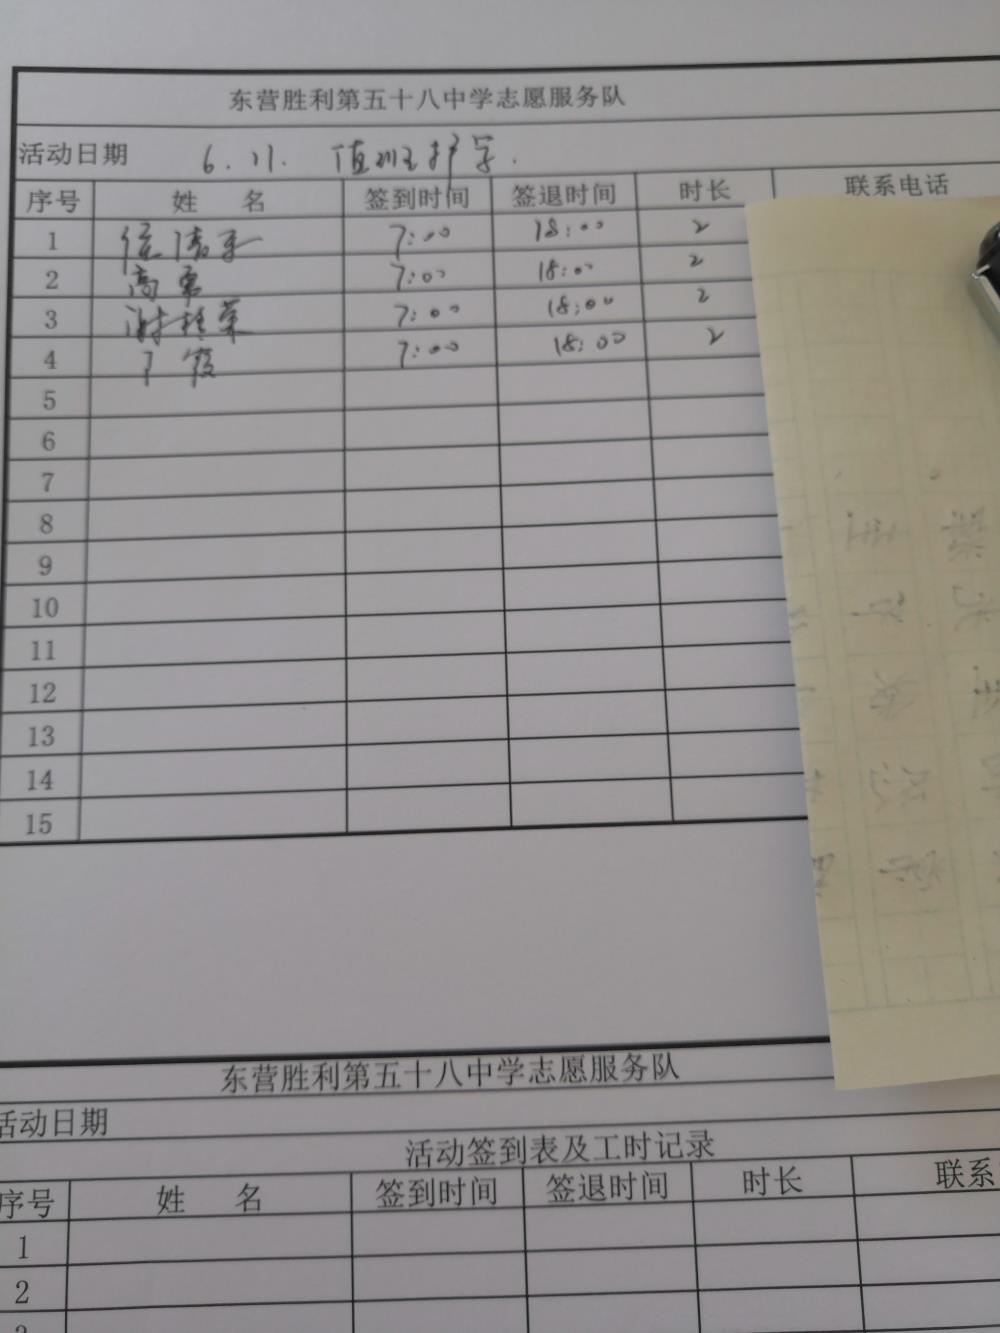 东营胜利第五十八中学志愿服务队
活动日期 6.11. 值班护学.
序号 姓 名 签到时间 签退时间 时长 联系电话
1 7:00 18:00 2
2 高 7:00 18:00 2
3 谢桂荣 7:00 18:00 2
4 丁霞 7:00 18:00 2
5
6
7
8
9
10
11
12
13
14
15
东营胜利第五十八中学志愿服务队
活动日期
活动签到表及工时记录
序号 姓 名 签到时间 签退时间 时长 联系
1
2
3